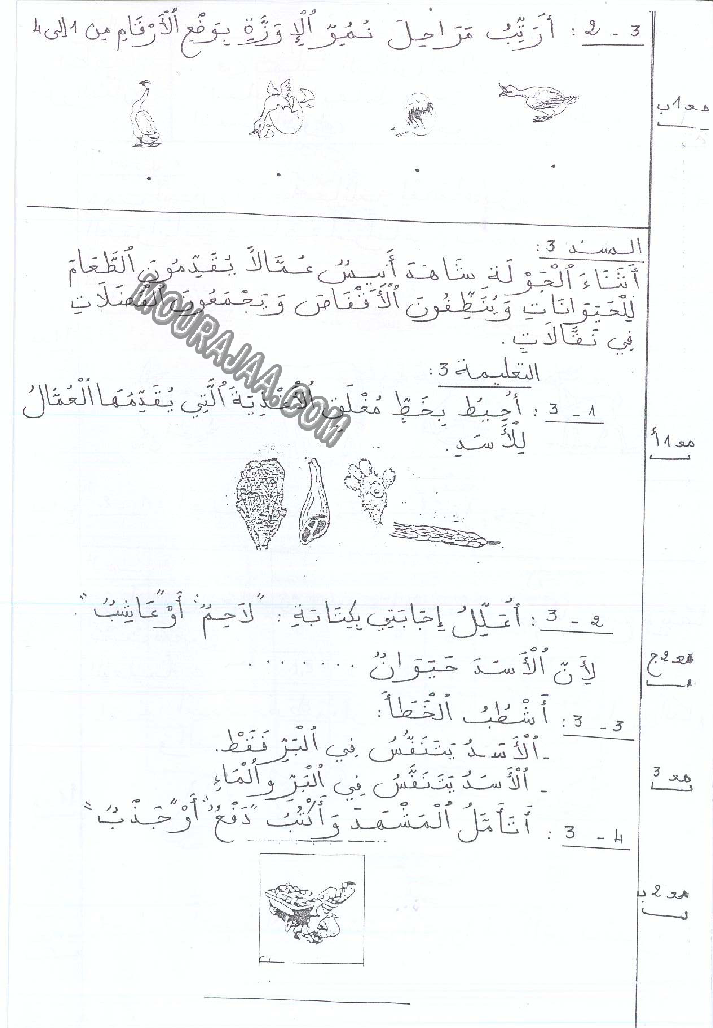 3 - 2 : أُرَتِّبُ مَرَاحِلَ نُمُوِّ ٱلْإِوَزَّةِ بِوَضْعِ ٱلْأَرْقَامِ مِن 1 إلى 4
معـ 1 ب
السند 3 :
أَثْنَاءَ ٱلْجَوْلَةِ شَاهَدَ أَنِيسٌ عُمَّالاً يُقَدِّمُونَ ٱلطَّعَامَ
لِلْحَيَوَانَاتِ وَيُنَظِّفُونَ ٱلْأَقْفَاصَ وَيَجْمَعُونَ ٱلْفَضَلَاتِ
فِي نَقَّالَاتٍ.
MOURAJAA.COM
التعليمة 3 :
3 - 1 : أُحِيطُ بِخَطٍّ مُغْلَقٍ ٱلْأَغْذِيَةَ ٱلَّتِي يُقَدِّمُهَا ٱلْعُمَّالُ
لِلْأَسَدِ.
معـ 1 أ
3 - 2 : أُعَلِّلُ إِجَابَتِي بِكِتَابَةِ : "لَاحِمٌ" أَوْ "عَاشِبٌ".
لِأَنَّ ٱلْأَسَدَ حَيَوَانٌ ........
معـ 2 ج
3 - 3 : أَشْطُبُ ٱلْخَطَأَ :
- ٱلْأَسَدُ يَتَنَفَّسُ فِي ٱلْبَرِّ فَقَطْ.
- ٱلْأَسَدُ يَتَنَفَّسُ فِي ٱلْبَرِّ وَٱلْمَاءِ
معـ 3
3 - 4 : أَتَأَمَّلُ ٱلْمَشْهَدَ وَأَكْتُبُ "دَفْعٌ" أَوْ "جَذْبٌ"
معـ 2 ب